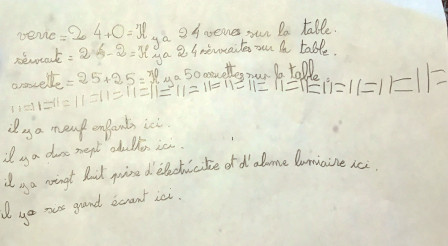 verre = 24+0 = Il y a 24 verres sur la table.
serviaite = 24-2 = Il y a 24 serviaites sur la table.
assiette = 25+25 = Il y a 50 assiettes sur la table.
il y a neuf enfants ici.
il y a dix sept adultes ici.
il y a vingt huit prise d'électricitée et d'alume lumiaire ici.
il y a six grand écrant ici.